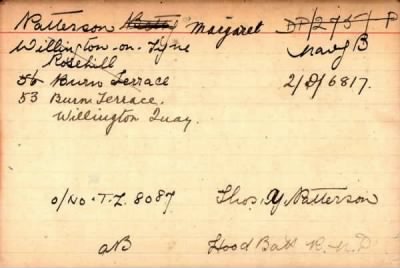 Patterson Margaret DP/2751/P
Willington-on-Tyne Navy B
Rosehill
56 Burn Terrace 2/D/6817.
53 Burn Terrace.
Willington Quay.
O/No. T.Z. 8087 Thos. Y Patterson
AB Hood Batt R.N.D.